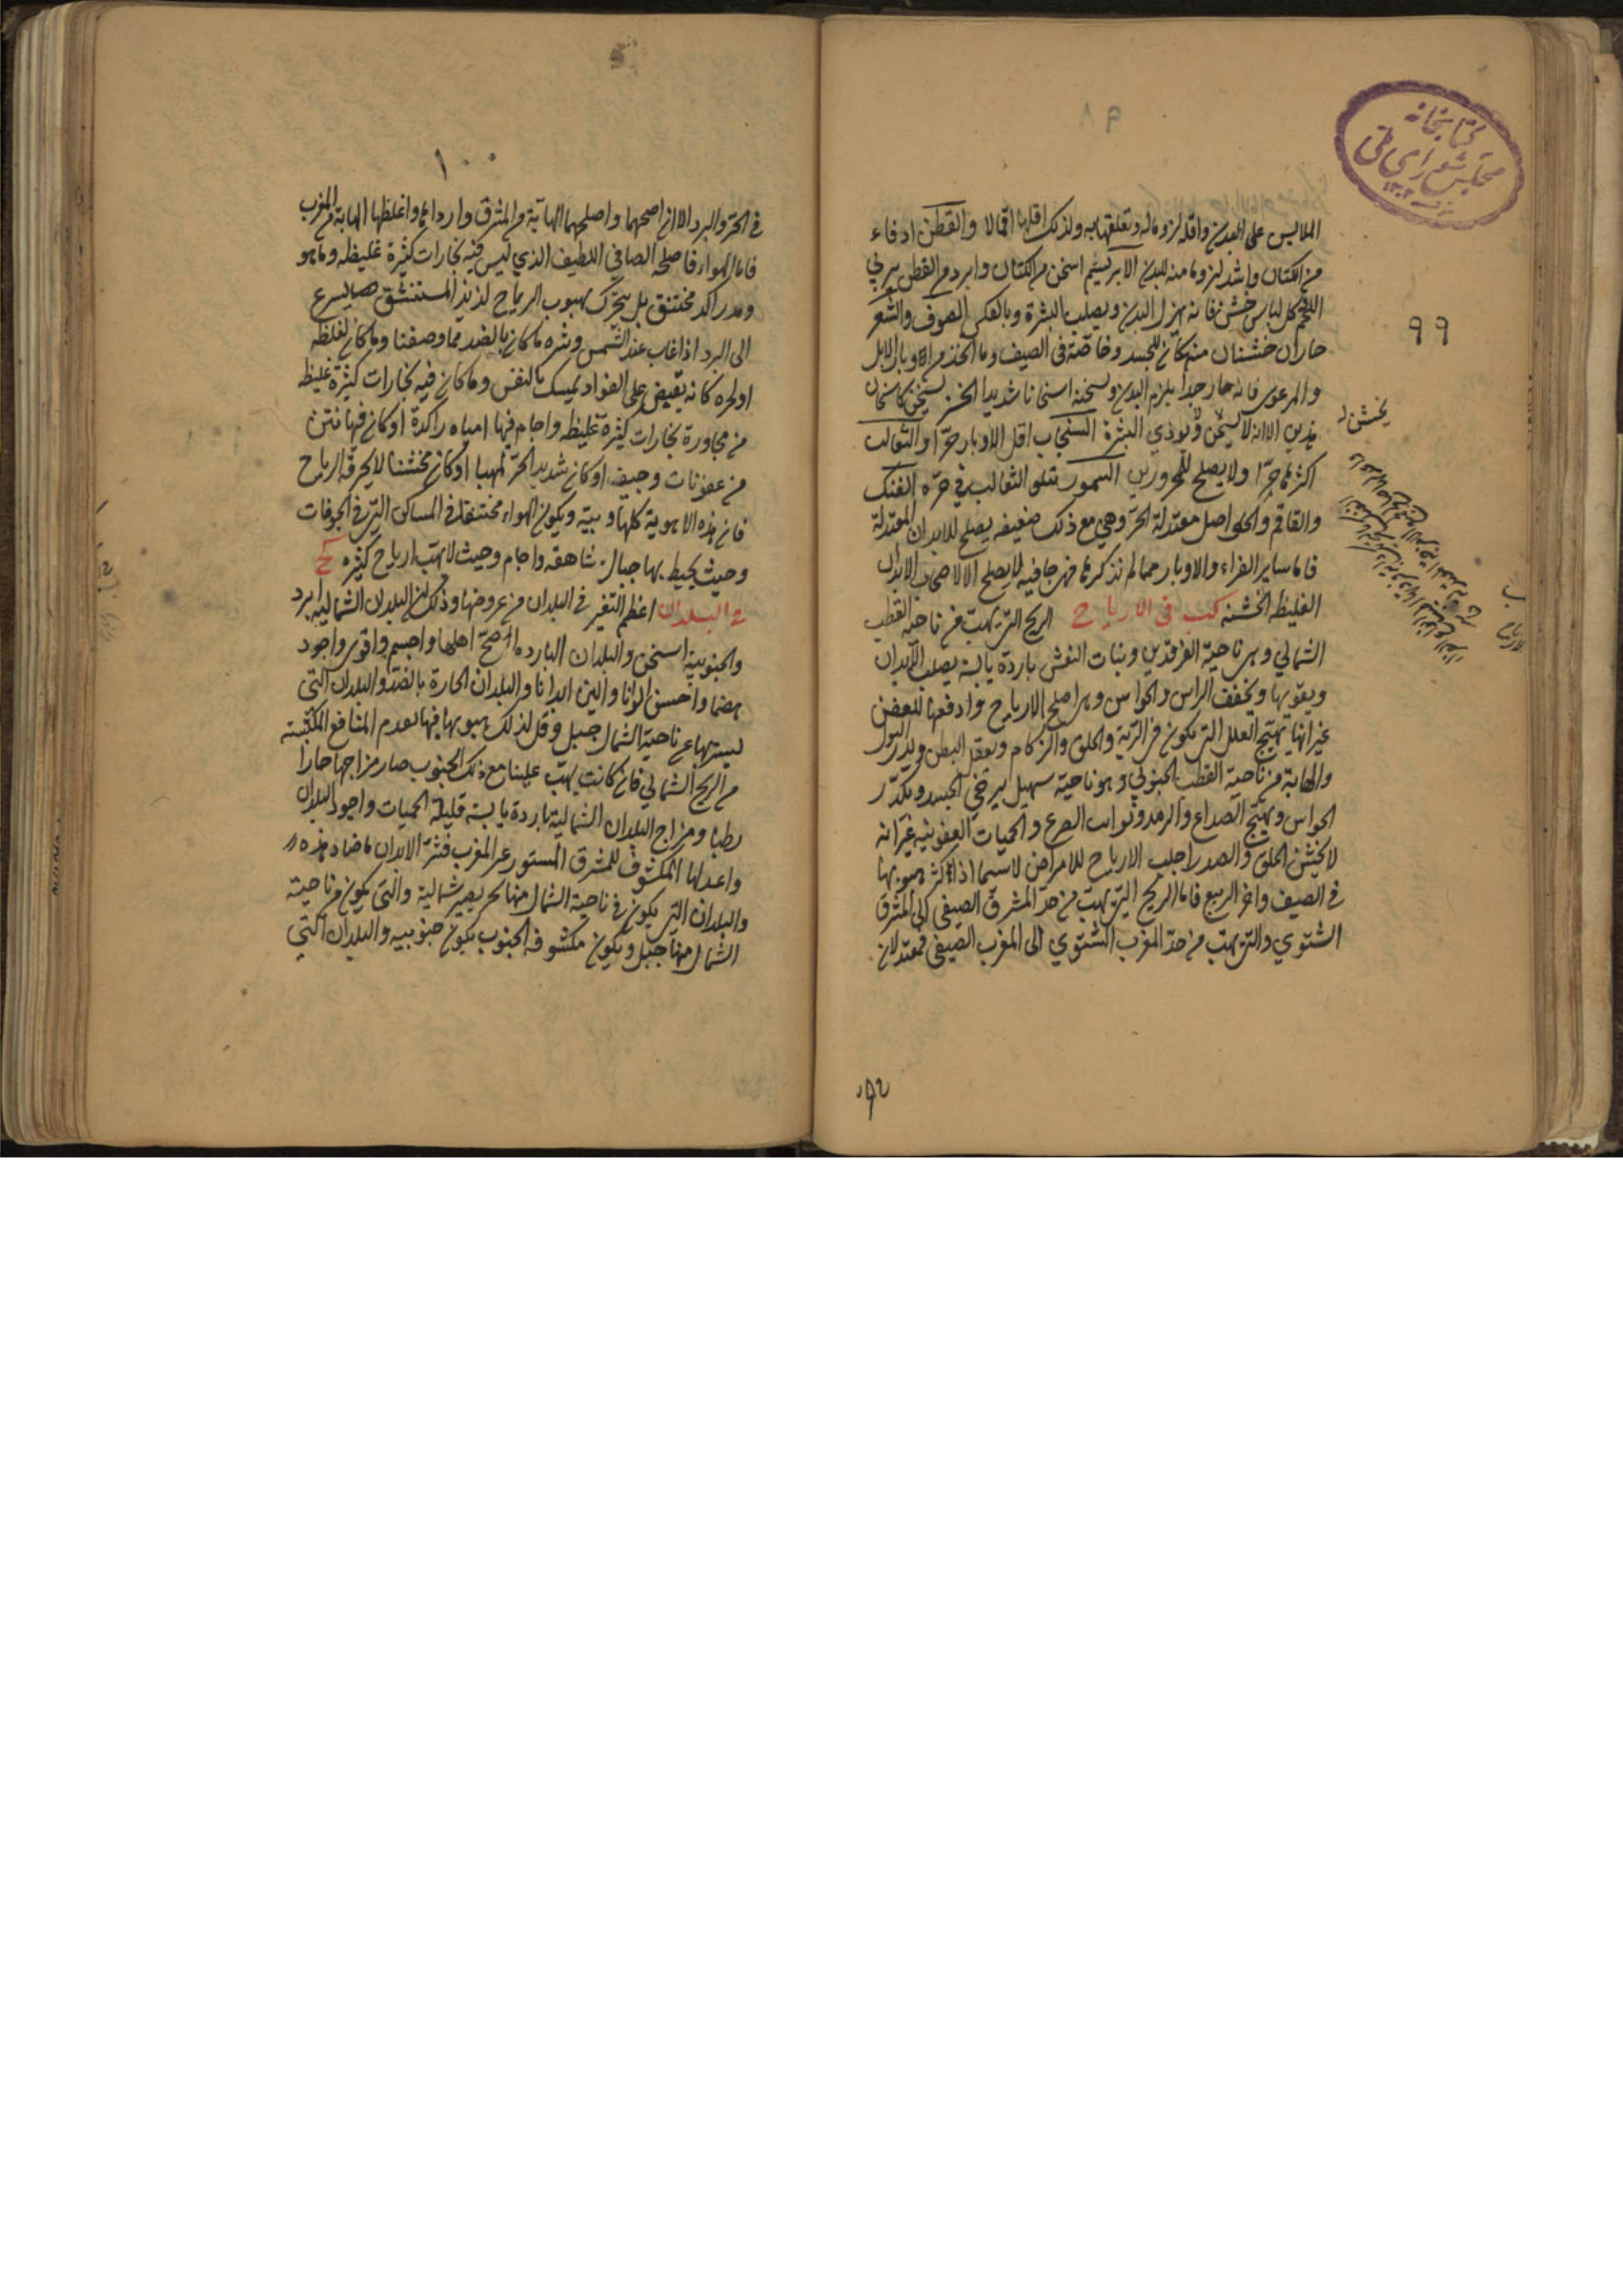 كتابخانه
مجلس شورای ملی
٩٩
الملابس على البدن واقله لزوما له وتعلقها به ولذلك اقلها اقمالا والقطن ادفاء
من الكتان واشد لزوما منه للبدن الابريسم اسخن من الكتان وابرد من القطن يربي
اللحم كل لباس خشن فانه يهزل البدن ويصلب البشرة وبالعكس الصوف والشعر
حاران خشنان منهكان للجسد وخاصة في الصيف وما اتخذ من اوبار الابل
والمرعزى فانه حار جدا يلزم البدن ويسخنه اسخانا شديدا الخز يسخن كاسخان
هذين الا انه لا يسخن ويوذي البشرة السنجاب اقل الاوبار حرا والثعالب
اكثرها حرا ولا يصلح للمحرورين السمور يتلو الثعالب في حره الفنك
والقاقم والحواصل معتدلة الحر وهي مع ذلك ضعيفه يصلح للابدان المعتدلة
فاما ساير الفراء والاوبار مما لم نذكر هما فهي جافيه لا يصلح الا لاصحاب الابدان
الغليظه الخشنه كب في الارياح الريح التي تهب من ناحية القطب
الشمالي وهي ناحية الفرقدين وبنات النعش باردة يابسة يصلب الابدان
ويقويها ويخفف الراس والحواس وهي اصلح الارياح وادفعها للعفن
غير انها تهيج العلل التي تكون في الرية والحلق والزكام ويعقل البطن ويدر البول
والهابة من ناحية القطب الجنوبي وهو ناحية سهيل يرخي الجسد ويكدر
الحواس وتهيج الصداع والرمد ونوايب الصرع والحميات العفونيه غير انه
لا يخشن الحلق والصدر اجلب الارياح للامراض لاسيما اذا كثر هبوبها
في الصيف واخر الربيع فاما الريح التي تهب من حد المشرق الصيفي الى المشرق
الشتوي والتي تهب من حد المغرب الشتوي الى المغرب الصيفي فمعتدلان
يخشن
١٠٠
في الحر والبرد الا ان اصحهما واصلحهما الهابة من المشرق واردائها واغلظها الهابة من المغرب
فاما الهواء فاصلحه الصافي اللطيف الذي ليس فيه بخارات كثيرة غليظه وما هو
راكد مختنق بل يتحرك بهبوب الرياح لذيذ المستنشق يسرع
الى البرد اذا غاب عنه الشمس وشره ما كان بالضد مما وصفنا وما كان لغلظه
او لحره كانه يقبض على الفواد يمسك بالنفس وما كان فيه بخارات كثيرة غليظه
من مجاورة بخارات كثيرة غليظه واجام فيها امياه راكدة او كان فيها نتن
من عفونات وجيفه او كان شديد الحر لهيبا او كان مختنقا لا يخرقه الرياح
فان هذه الاهوية كلها وبيّه ويكون الهواء مختنقا في المساكن التي في الجوفات
وحيث يحيط بها جبال شاهقه واجام وحيث لا تهب ارياح كثيره كج
في البلدان اعظم التغير في البلدان من عروضها وذلك ان البلدان الشماليه ابرد
والجنوبية اسخن والبلدان البارده اصح اهلها واجسم واقوى واجود
هضما واحسن الوانا والين ابدانا والبلدان الحارة بالضد والبلدان التي
يسترها عن ناحية الشمال جبل وقل لذلك هبوبها فيها بعدم المنافع المكتسبه
من الريح الشمالي فان كانت يهب علينا مع ذلك الجنوب صار مزاجها حارا
رطبا ومزاج البلدان الشمالية باردة يابسة قليلة الحميات واجود البلدان
واعدلها المكشوف للمشرق المستور عن المغرب فشر الابدان ما ضاد هذه
والبلدان التي يكون في ناحية الشمال منها بحر يصير شمالية والتي يكون من ناحية
الشمال منها جبل ويكون مكشوفه الجنوب يكون جنوبيه والبلدان التي